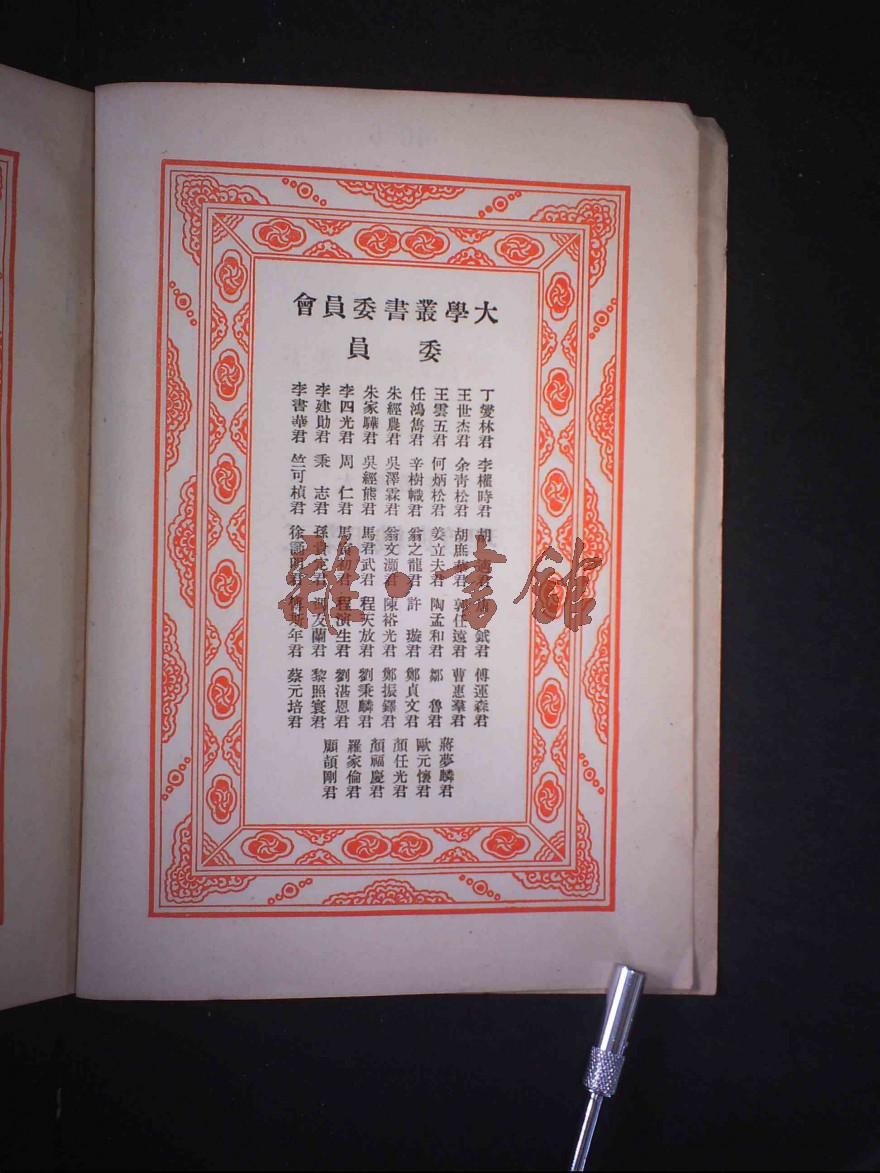 大學叢書委員會
委員
丁燮林君
王世杰君
王雲五君
任鴻雋君
朱經農君
朱家驊君
李四光君
李建勛君
李書華君
李權時君
余青松君
何炳松君
辛樹幟君
吳澤霖君
吳經熊君
周仁君
秉志君
竺可楨君
胡適君
胡庶華君
姜立夫君
翁之龍君
翁文灝君
馬君武君
馬寅初君
孫貴定君
徐誦明君
唐鉞君
郭任遠君
陶孟和君
許璇君
陳裕光君
程天放君
程演生君
馮友蘭君
傅斯年君
傅運森君
曹惠羣君
鄒魯君
鄭貞文君
鄭振鐸君
劉秉麟君
劉湛恩君
黎照寰君
蔡元培君
蔣夢麟君
歐元懷君
顏任光君
顏福慶君
羅家倫君
顧頡剛君
雅·書館